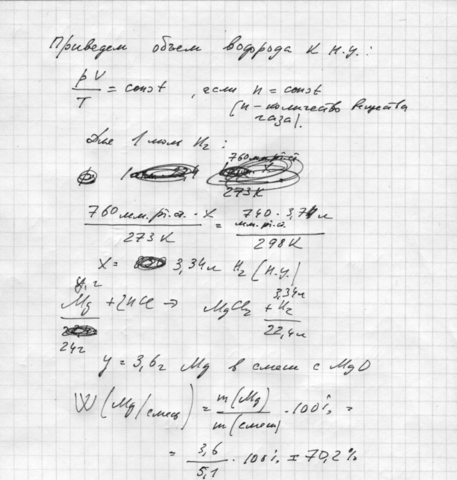 Приведем объем водорода к н.у.:
pV/T = const, если n = const
(n - количество вещества
газа).
Для 1 моль H₂:
760 мм.рт.ст.
273 K
760 мм.рт.ст. · X / 273 K = 740 мм.рт.ст. · 3,74 л / 298 K
X = 3,34 л H₂ (н.у.)
y, г 3,34 л
Mg + 2HCl → MgCl₂ + H₂
24 г 22,4 л
y = 3,6 г Mg в смеси с MgO
W (Mg/смеси) = m(Mg) / m(смеси) · 100% =
= 3,6 / 5,1 · 100% = 70,2%